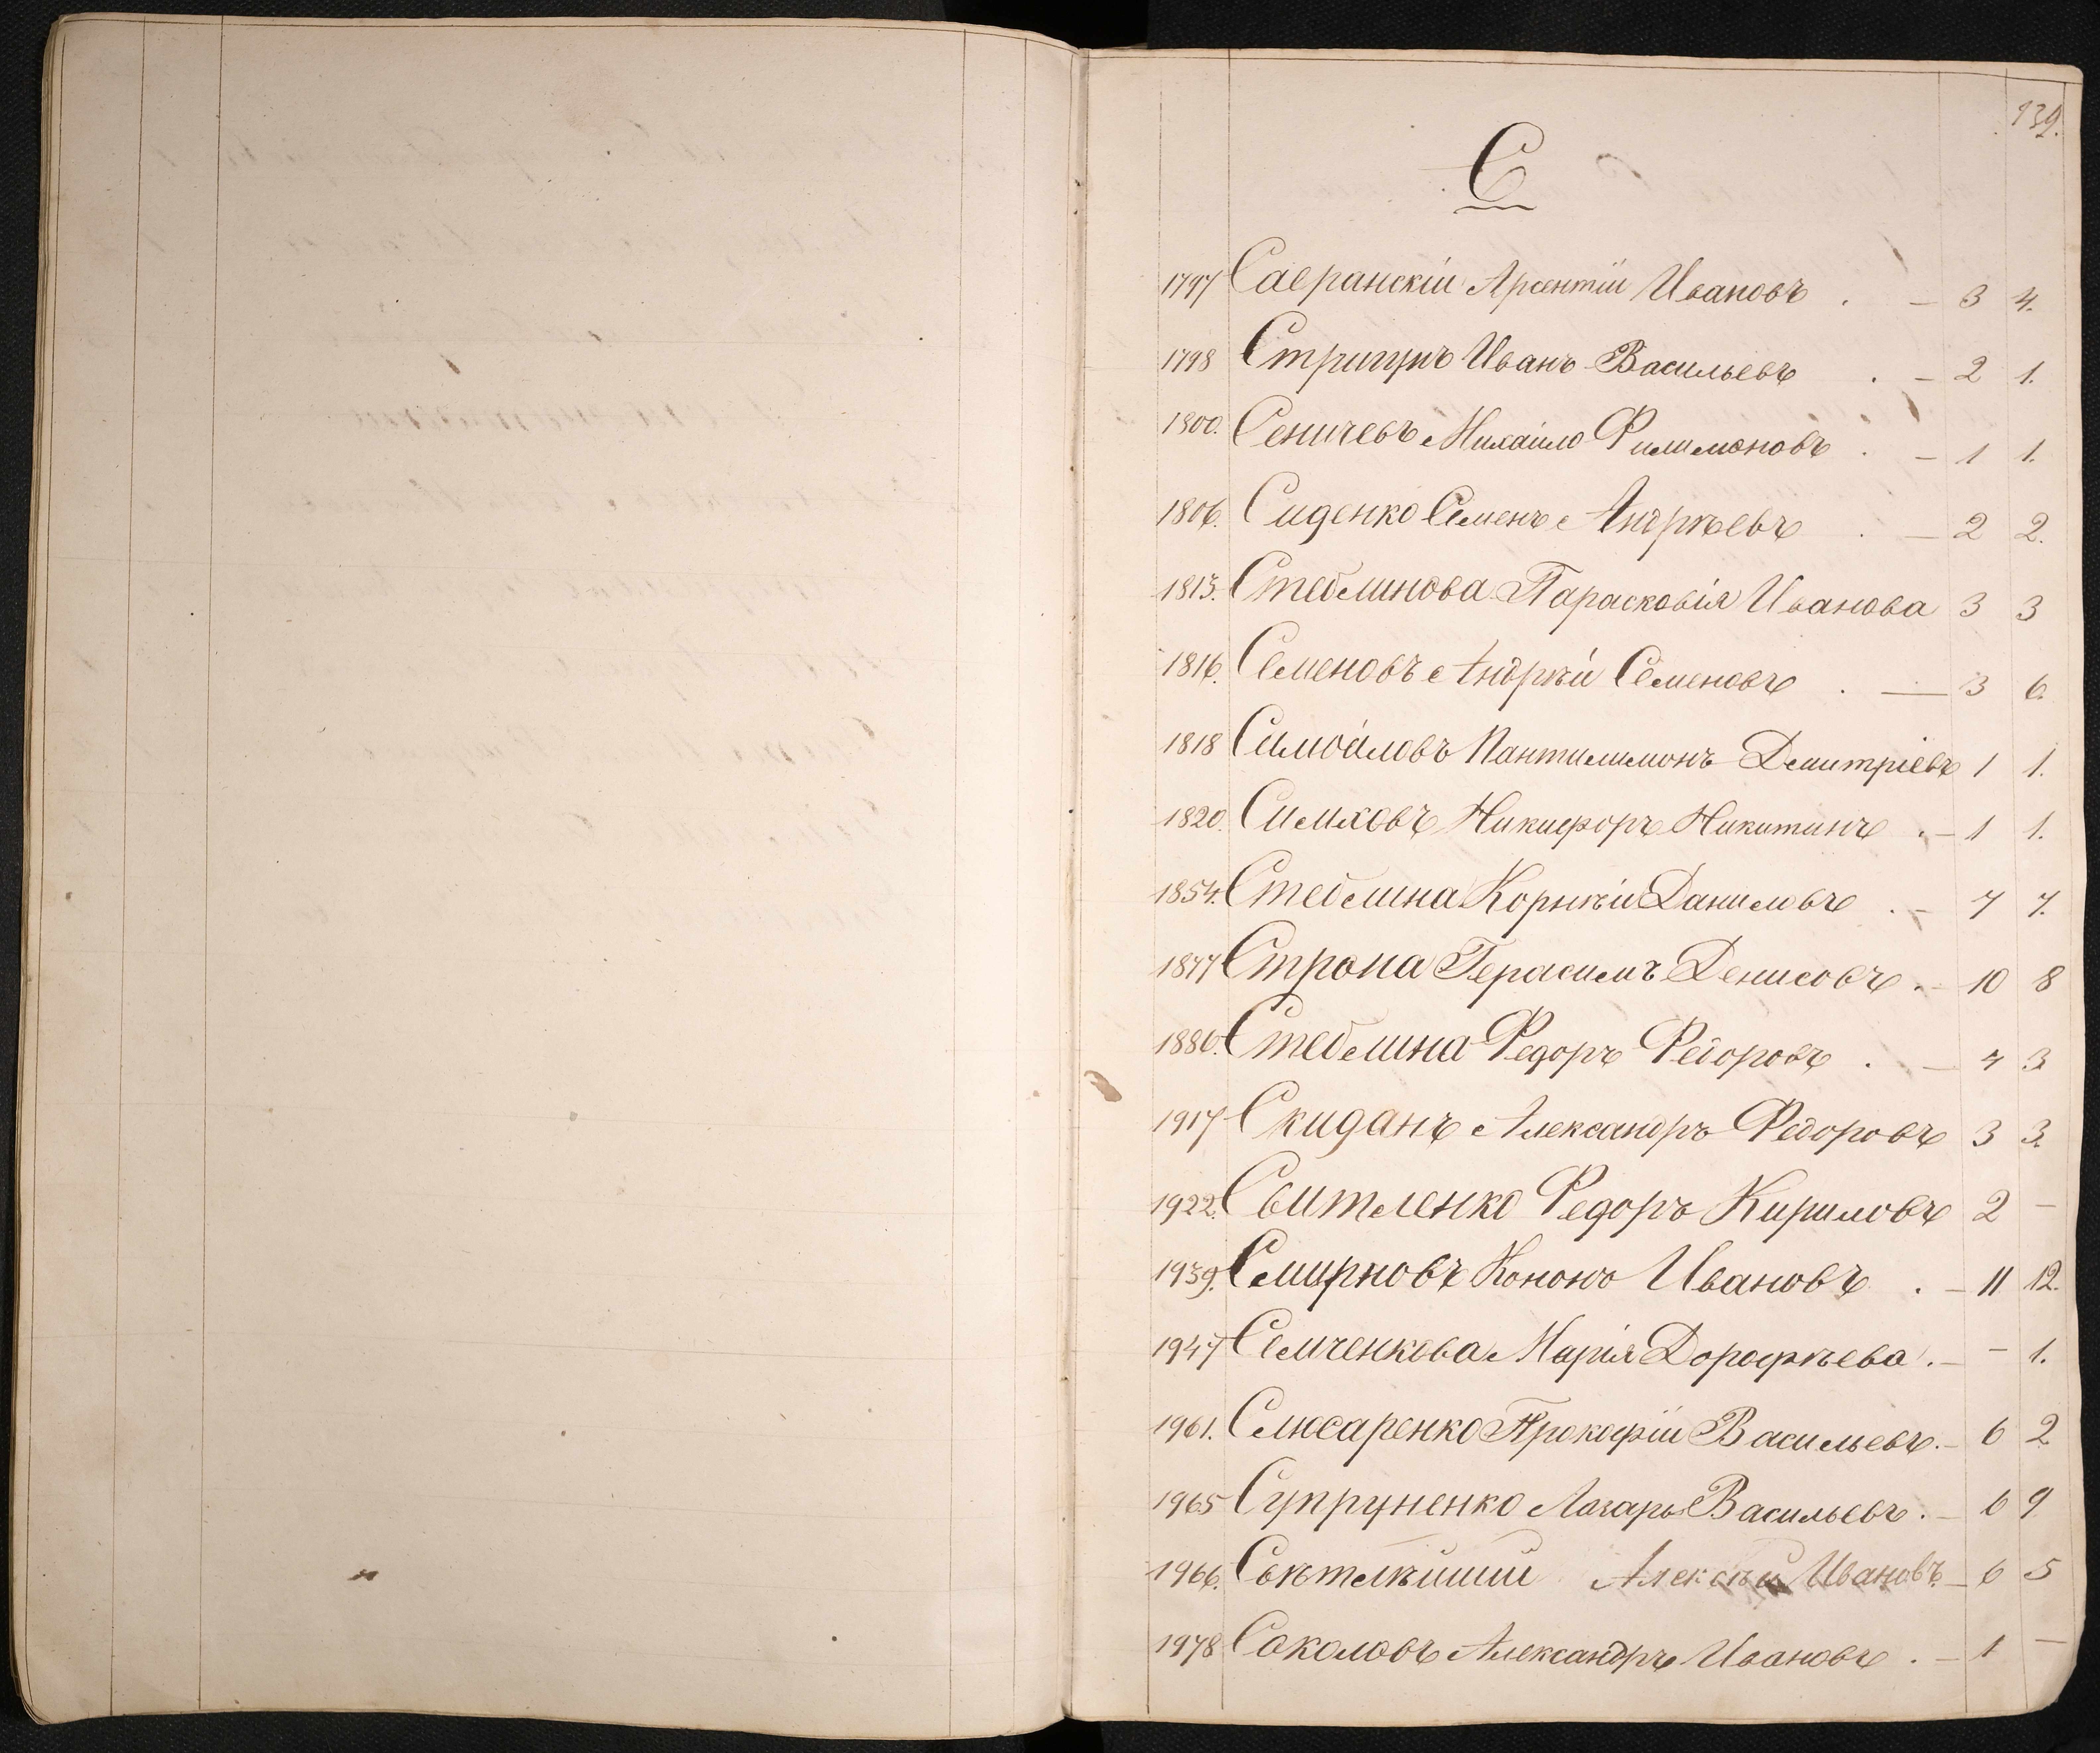 139.
С
1797 Савранскій Арсентій Ивановъ . — 3 4.
1798 Стригунъ Иванъ Васильевъ . — 2 1.
1800. Сеничевъ Михайло Филимоновъ . — 1 1.
1806. Сиденко Семенъ Андрѣевъ . — 2 2.
1813. Стеблинова Парасковія Иванова 3 3
1816. Семеновъ Андрѣй Семеновъ . — 3 6.
1818 Симваловъ Пантилимонъ Дмитріевъ 1 1.
1820. Симховъ Никифоръ Никитинъ . — 1 1.
1854. Стеблина Корнѣй Даниловъ . — 7 7.
1877 Строна Герасимъ Денисовъ . — 10 8
1880. Стеблина Федоръ Федоровъ . — 4 3.
1917 Скиданъ Александръ Федоровъ 3 3.
1922. Свитленко Федоръ Кириловъ 2 —
1939. Смирновъ Кононъ Ивановъ . — 11 12.
1947 Семченкова Марія Дорофѣева . — — 1.
1961. Слюсаренко Прокофій Васильевъ. — 6 2
1965 Супруненко Лазарь Васильевъ . — 6 9
1966. Свѣтлѣйшій Алексѣй Ивановъ — 6 5
1978 Соколовъ Александръ Ивановъ . — 1 —